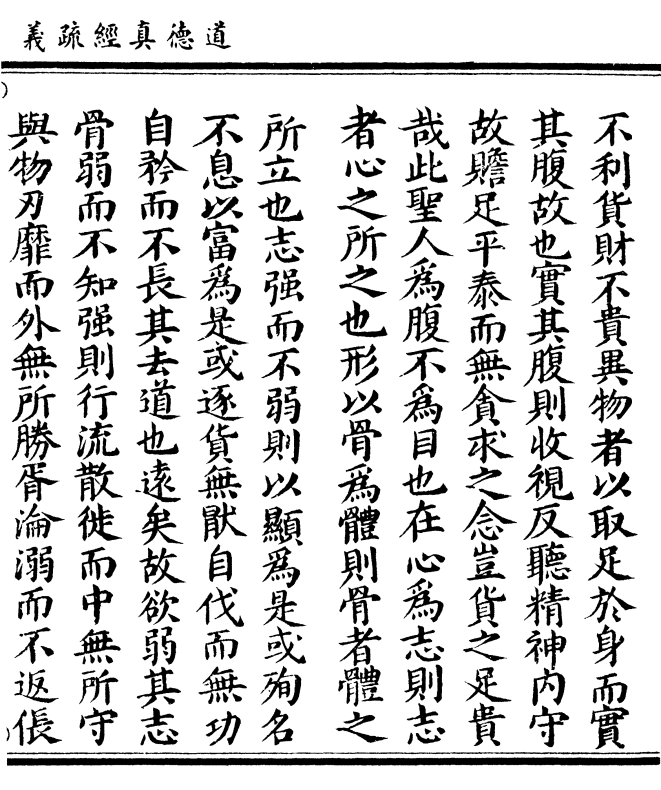 道德真經疏義
不利貨財不貴異物者以取足於身而實
其腹故也實其腹則收視反聽精神內守
故贍足平泰而無貪求之念豈貨之足貴
哉此聖人為腹不為目也在心為志則志
者心之所之也形以骨為體則骨者體之
所立也志强而不弱則以顯為是或殉名
不息以富為是或逐貨無猒自伐而無功
自矜而不長其去道也遠矣故欲弱其志
骨弱而不知强則行流散徙而中無所守
與物刃靡而外無所勝胥淪溺而不返倀